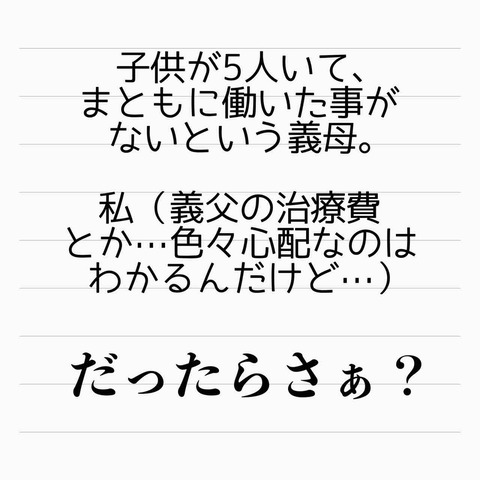 子供が5人いて、
まともに働いた事が
ないという義母。
私（義父の治療費
とか…色々心配なのは
わかるんだけど…）
だったらさぁ？